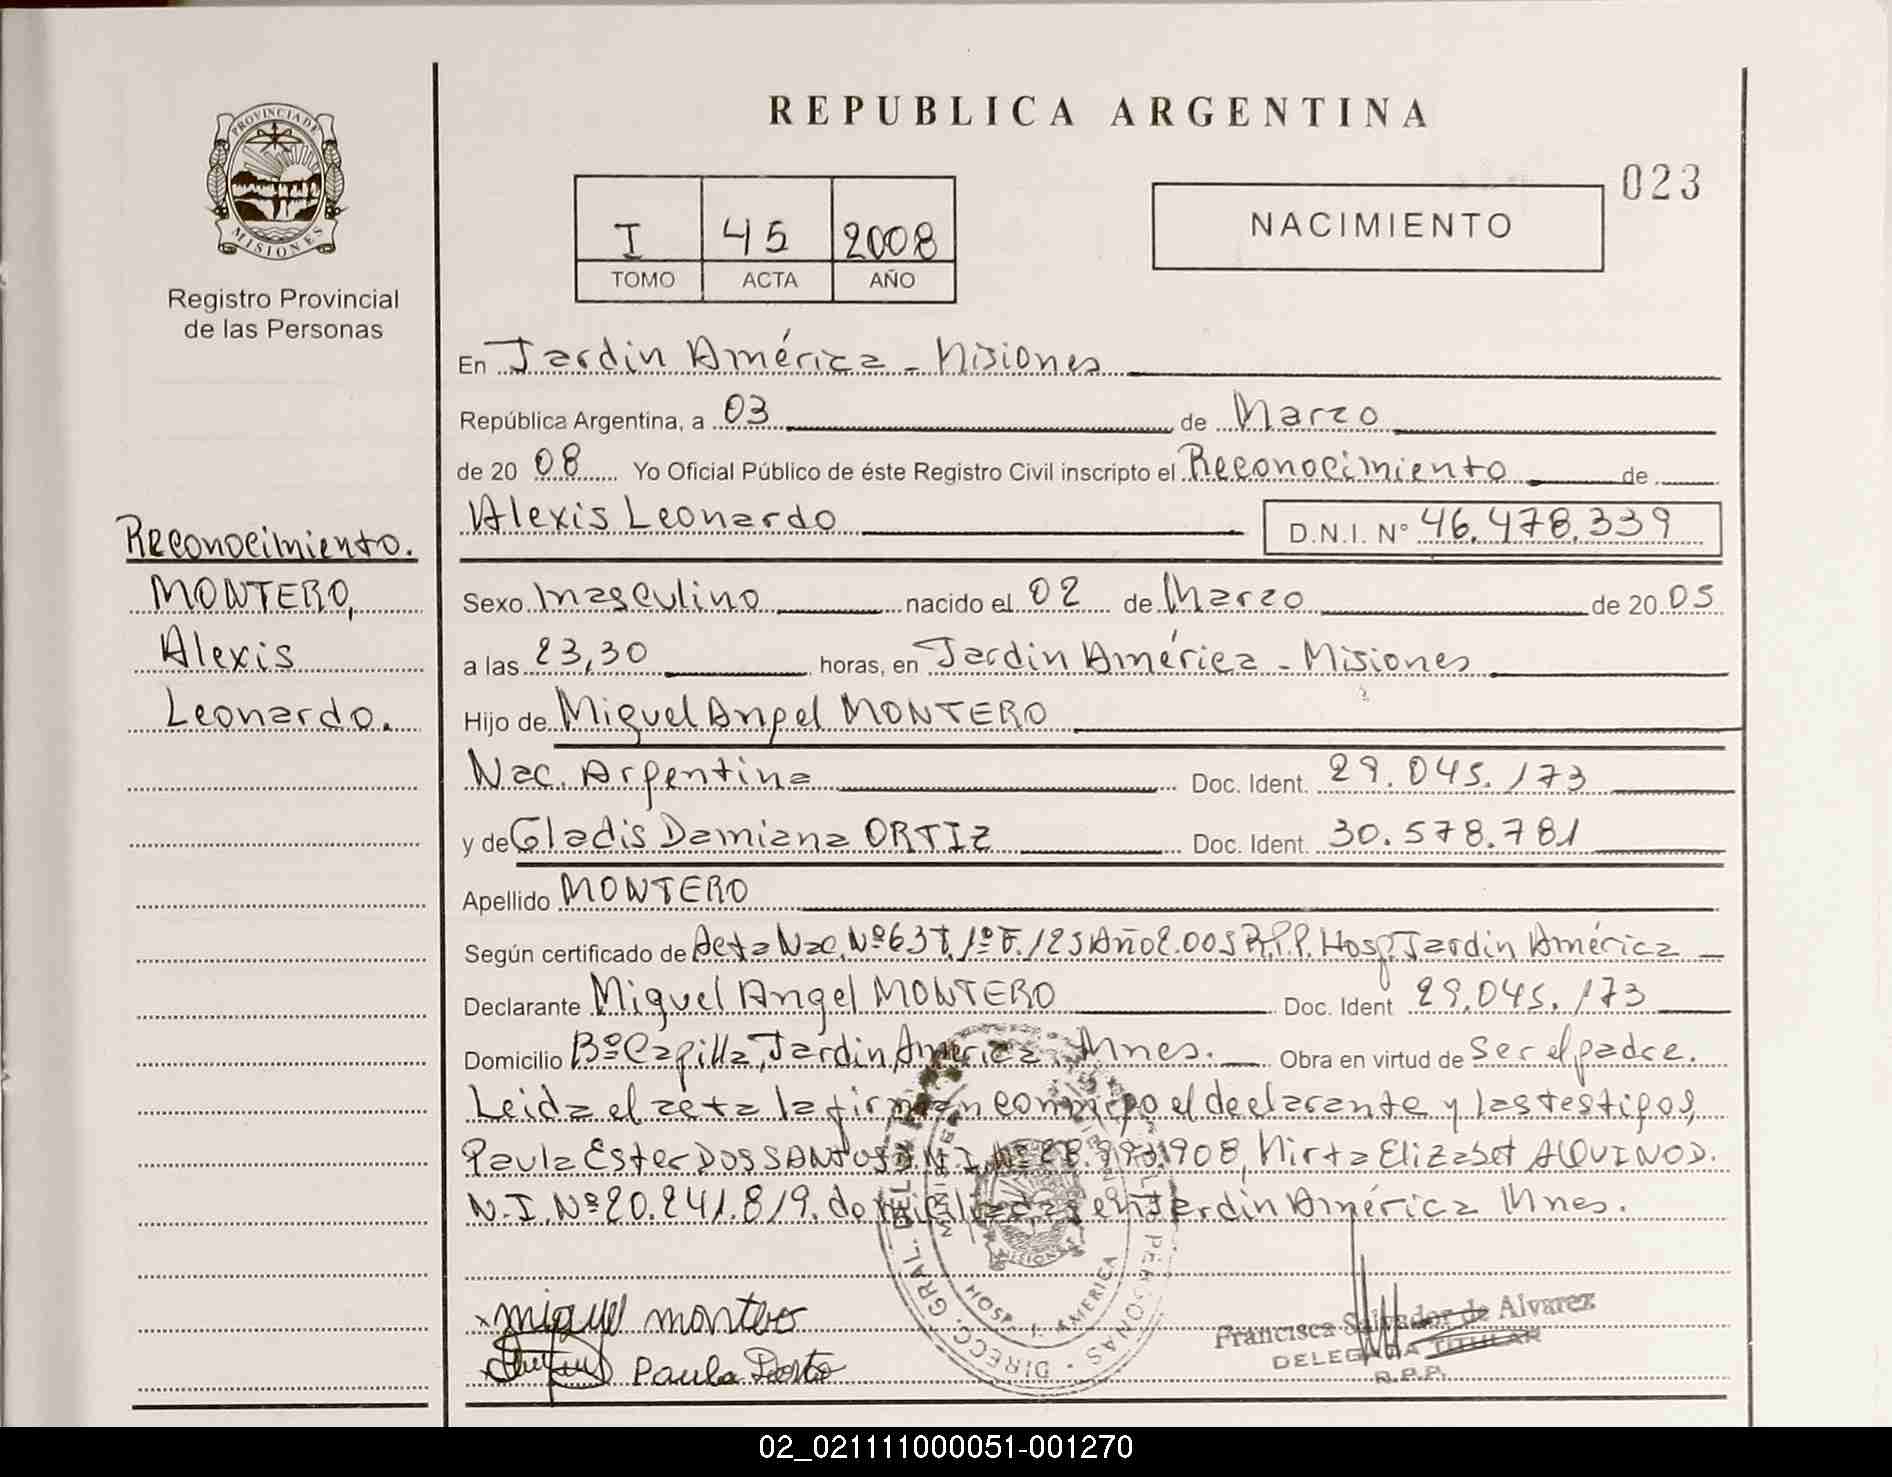 PROVINCIA DE
MISIONES
Registro Provincial
de las Personas
REPUBLICA ARGENTINA
023
I 45 2008
TOMO ACTA AÑO
NACIMIENTO
En Jardin América - Misiones
República Argentina, a 03 de Marzo
de 20 08 Yo Oficial Público de éste Registro Civil inscripto el Reconocimiento de
Alexis Leonardo D.N.I. N° 46.478.339
Reconocimiento.
MONTERO,
Alexis
Leonardo.
Sexo masculino nacido el 02 de Marzo de 20 05
a las 23,30 horas, en Jardin América - Misiones
Hijo de Miguel Angel MONTERO
Nac. Argentina Doc. Ident. 29.045.173
y de Gladis Damiana ORTIZ Doc. Ident. 30.578.781
Apellido MONTERO
Según certificado de Acta Nac. Nº 637. 1º T. /25 Año 2.005 R.P.P. Hosp. Jardin América
Declarante Miguel Angel MONTERO Doc. Ident 29.045.173
Domicilio Bº Capilla, Jardin América, Mnes. Obra en virtud de Ser el padre.
Leida el acta la firman conmigo el declarante y las testigos,
Paula Ester DOS SANTOS D.N.I. Nº 28. 908, Mirta Elizabet AQUINO D.
N.I. Nº 20.241.819. domiciliadas en Jardin América Mnes.
x miguel montero
Paula
DIRECC. GRAL. DEL PERSONAS
HOSP. J. AMERICA
MISIONES
Francisca Salvador de Alvarez
DELEGADA TITULAR
R.P.P.
02_021111000051-001270